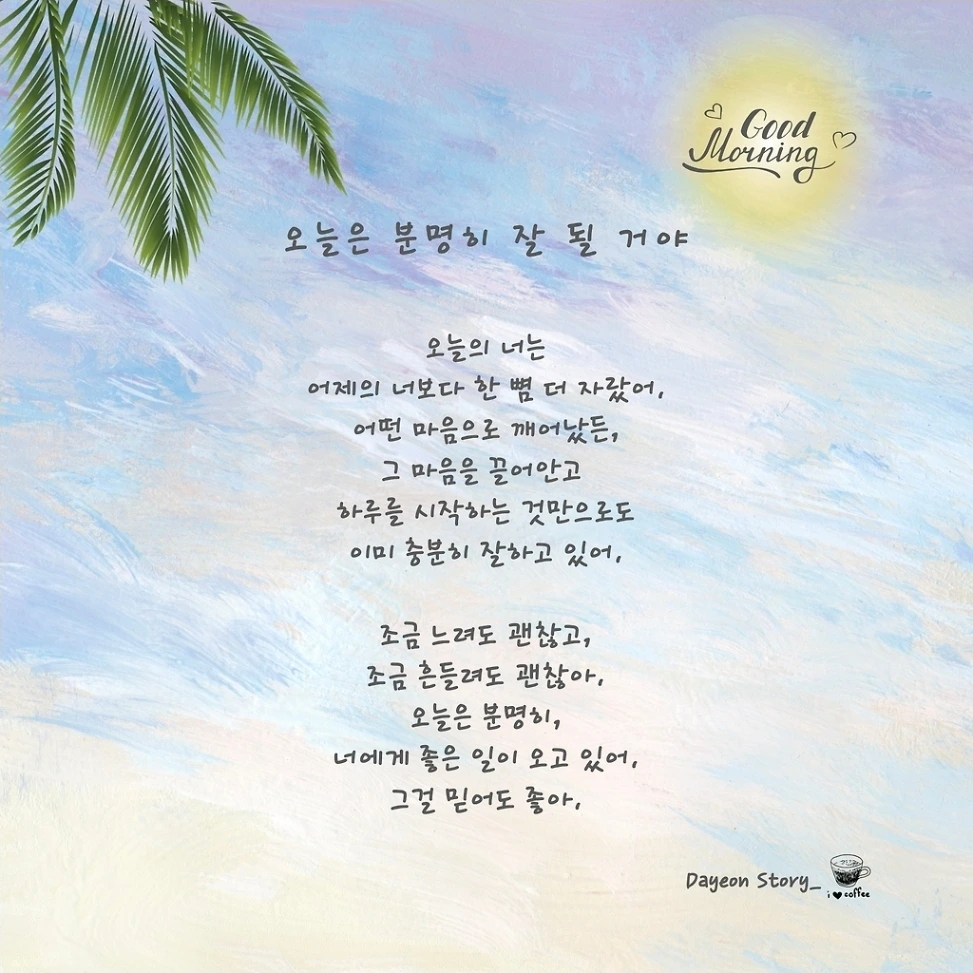 Good
Morning
오늘은 분명히 잘 될 거야
오늘의 너는
어제의 너보다 한 뼘 더 자랐어.
어떤 마음으로 깨어났든,
그 마음을 끌어안고
하루를 시작하는 것만으로도
이미 충분히 잘하고 있어.
조금 느려도 괜찮고,
조금 흔들려도 괜찮아.
오늘은 분명히,
너에게 좋은 일이 오고 있어.
그걸 믿어도 좋아.
Dayeon Story_
i ♥ coffee